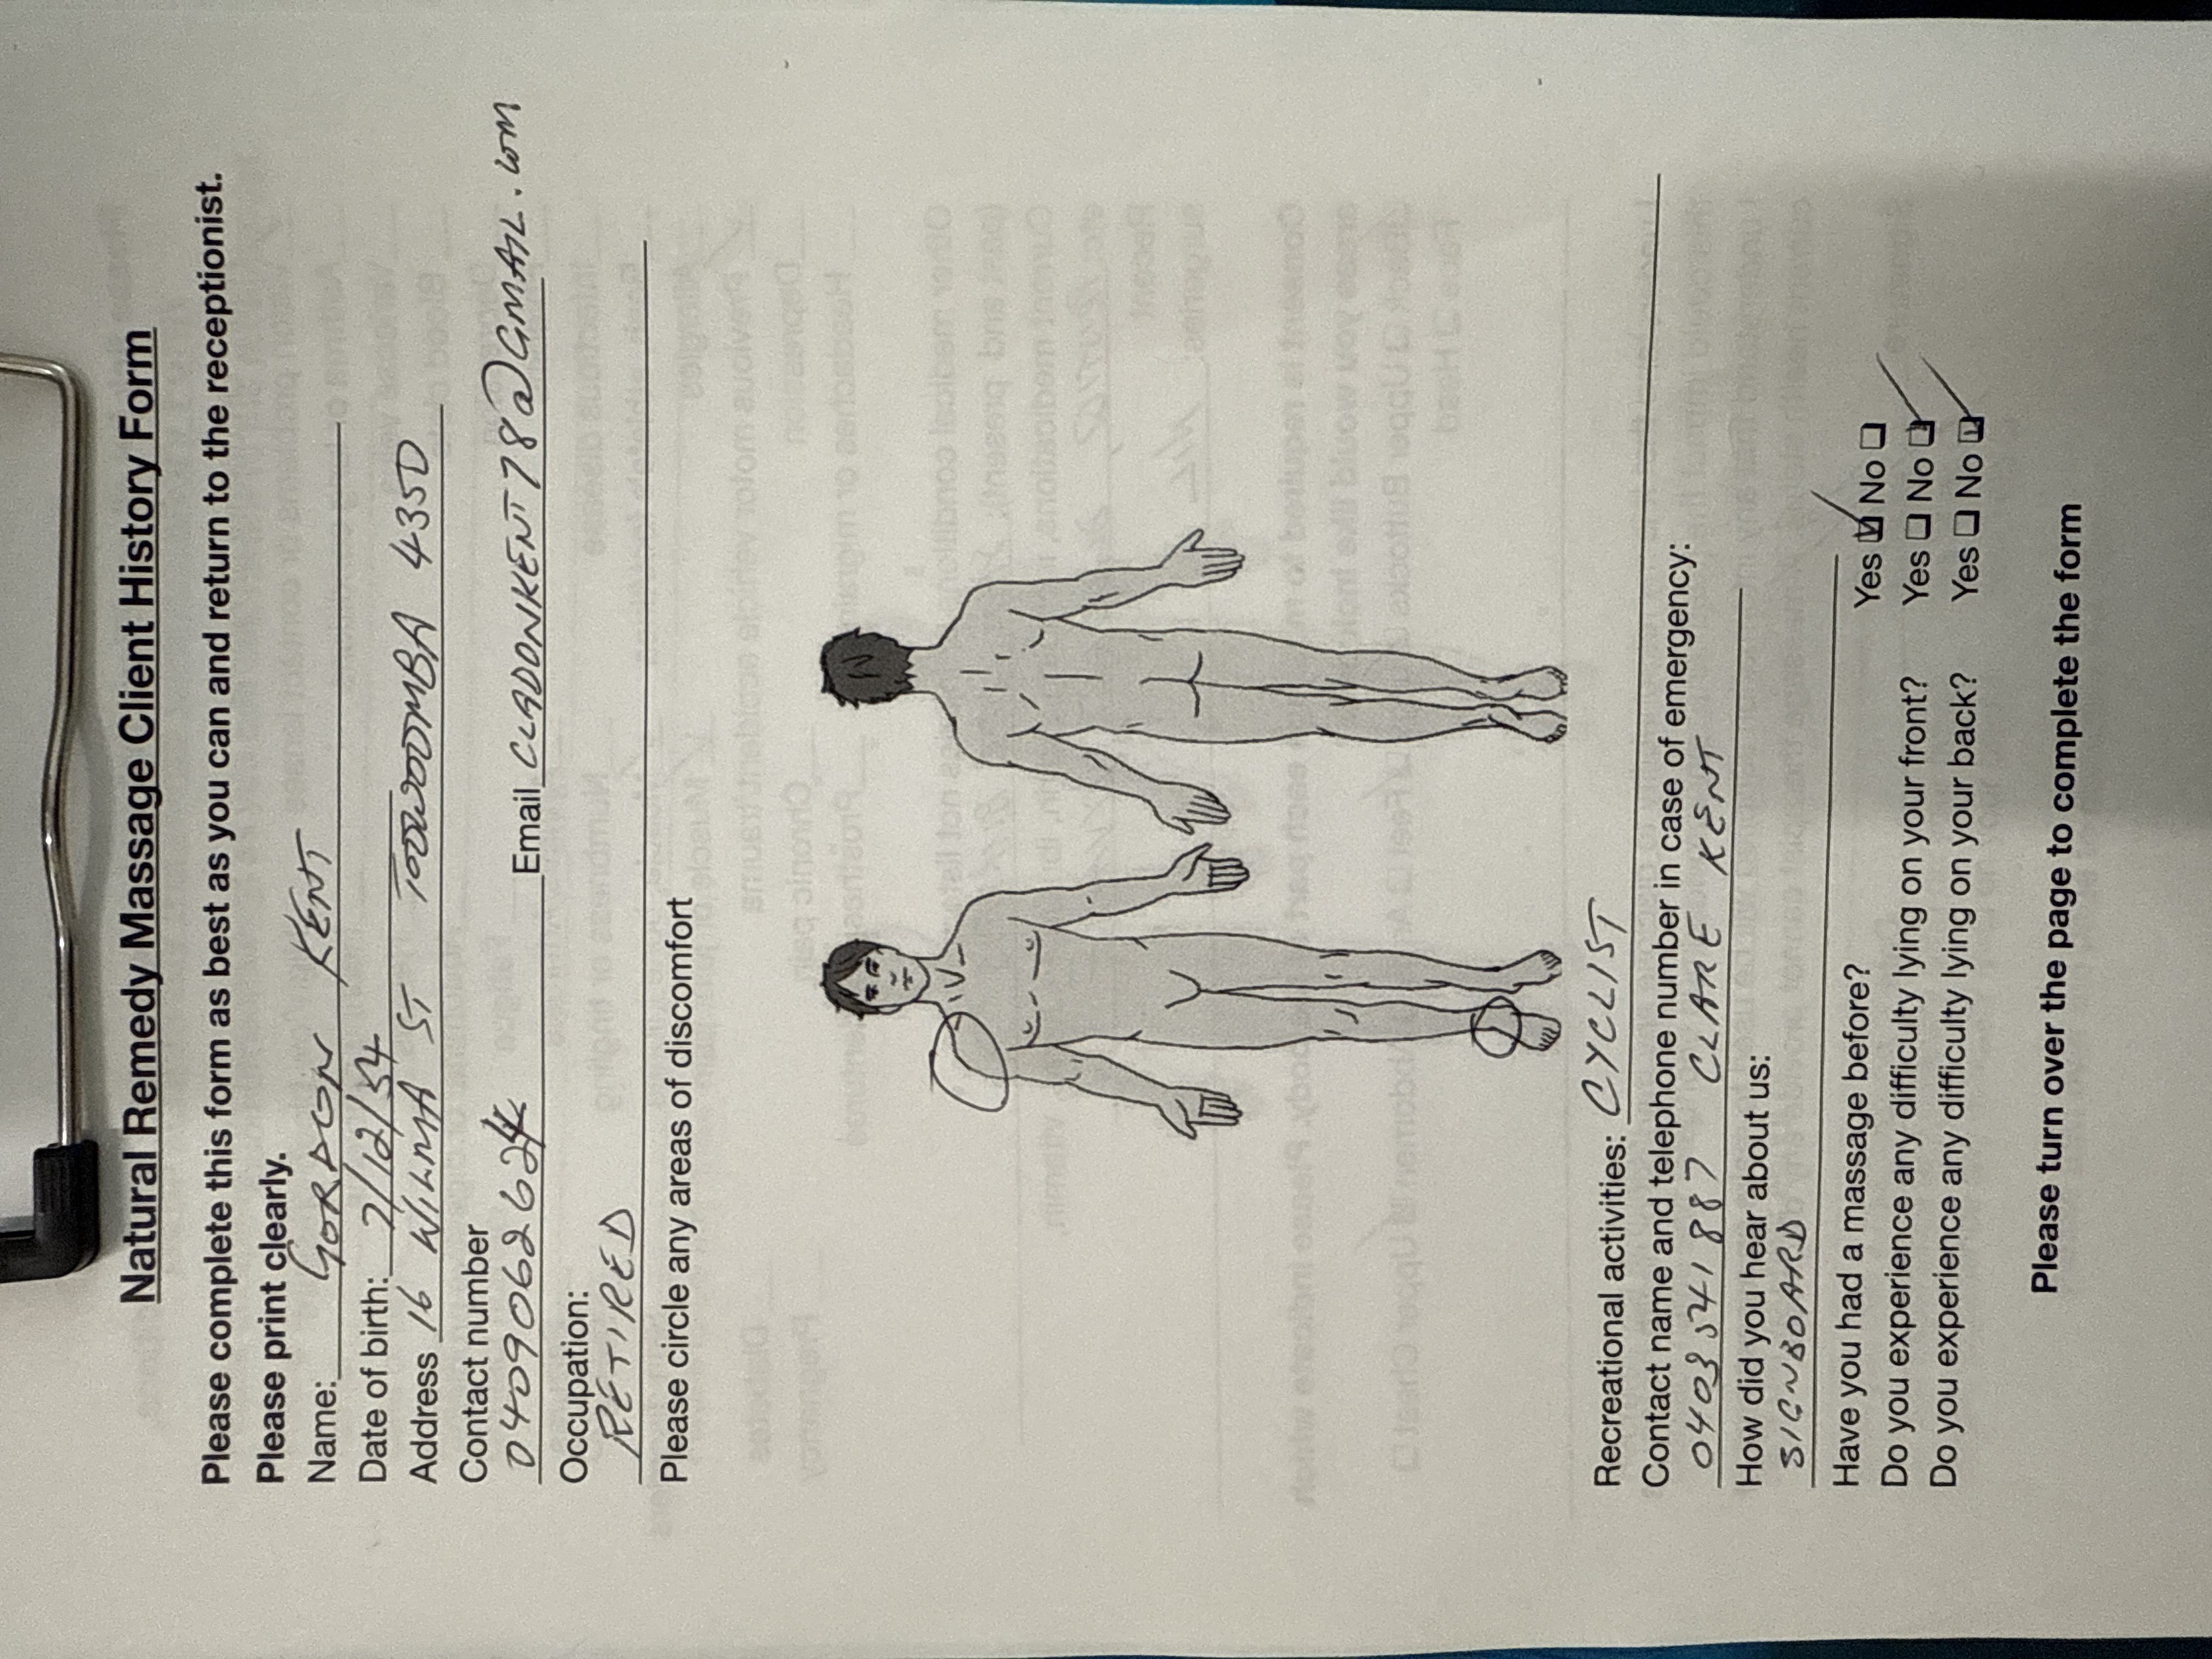 Natural Remedy Massage Client History Form
Please complete this form as best as you can and return to the receptionist.
Please print clearly.
Name: GORDON KENT
Date of birth: 7/12/54
Address 16 WILMA ST TOOWOOMBA 4350
Contact number
Email CLADONKENT78@GMAIL.com
Occupation:
RETIRED
Please circle any areas of discomfort
Recreational activities: CYCLIST
Contact name and telephone number in case of emergency:
0403541887 CLARE KENT
How did you hear about us:
SIGNBOARD
Have you had a massage before? Yes ☑ No ☐
Do you experience any difficulty lying on your front? Yes ☐ No ☑
Do you experience any difficulty lying on your back? Yes ☐ No ☑
Please turn over the page to complete the form